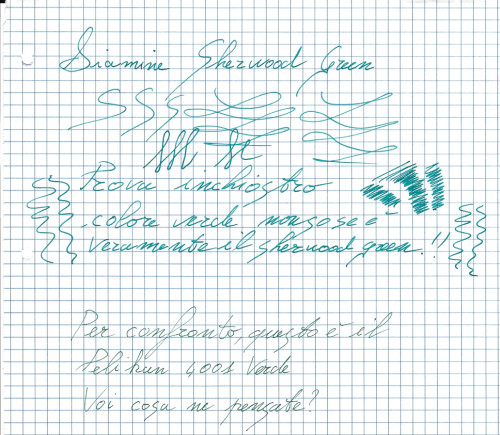 Diamine Sherwood Green
Prova inchiostro
colore verde non so se è
veramente il Sherwood green!!
Per confronto, questo è il
Pelikan 4001 Verde
Voi cosa ne pensate?